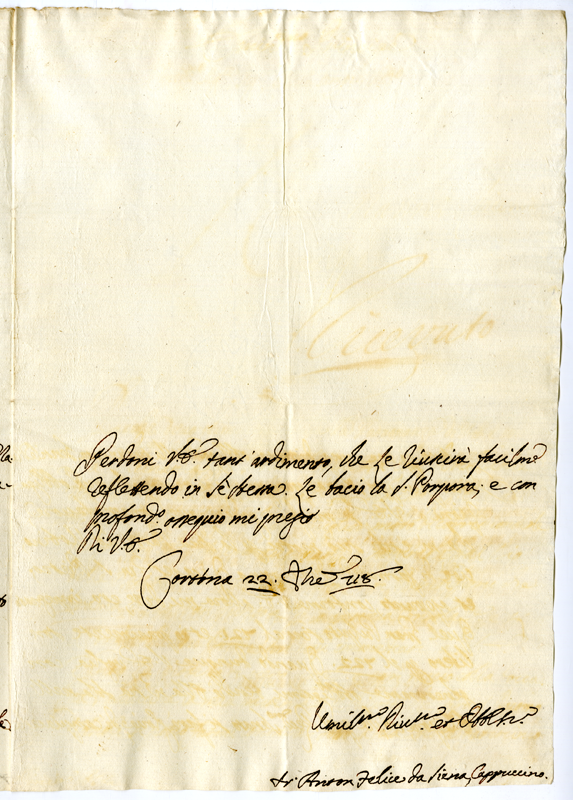 Perdoni V.E. tant'ardimento, che le riuscirà facilm.e
reflettendo in sè stessa. Le bacio la s. Porpora, e con
profond.o ossequio mi pregio
Di V.E.
Cortona 22. 118.
Umil.mo Div.mo et Obbl.mo
fr' Anton Felice da Siena Cappuccino.
Ricevuto